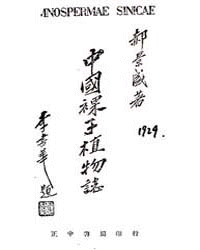 GYMNOSPERMAE SINICAE
郝景盛著
1929.
中國裸子植物誌
李書華題
正中書局印行